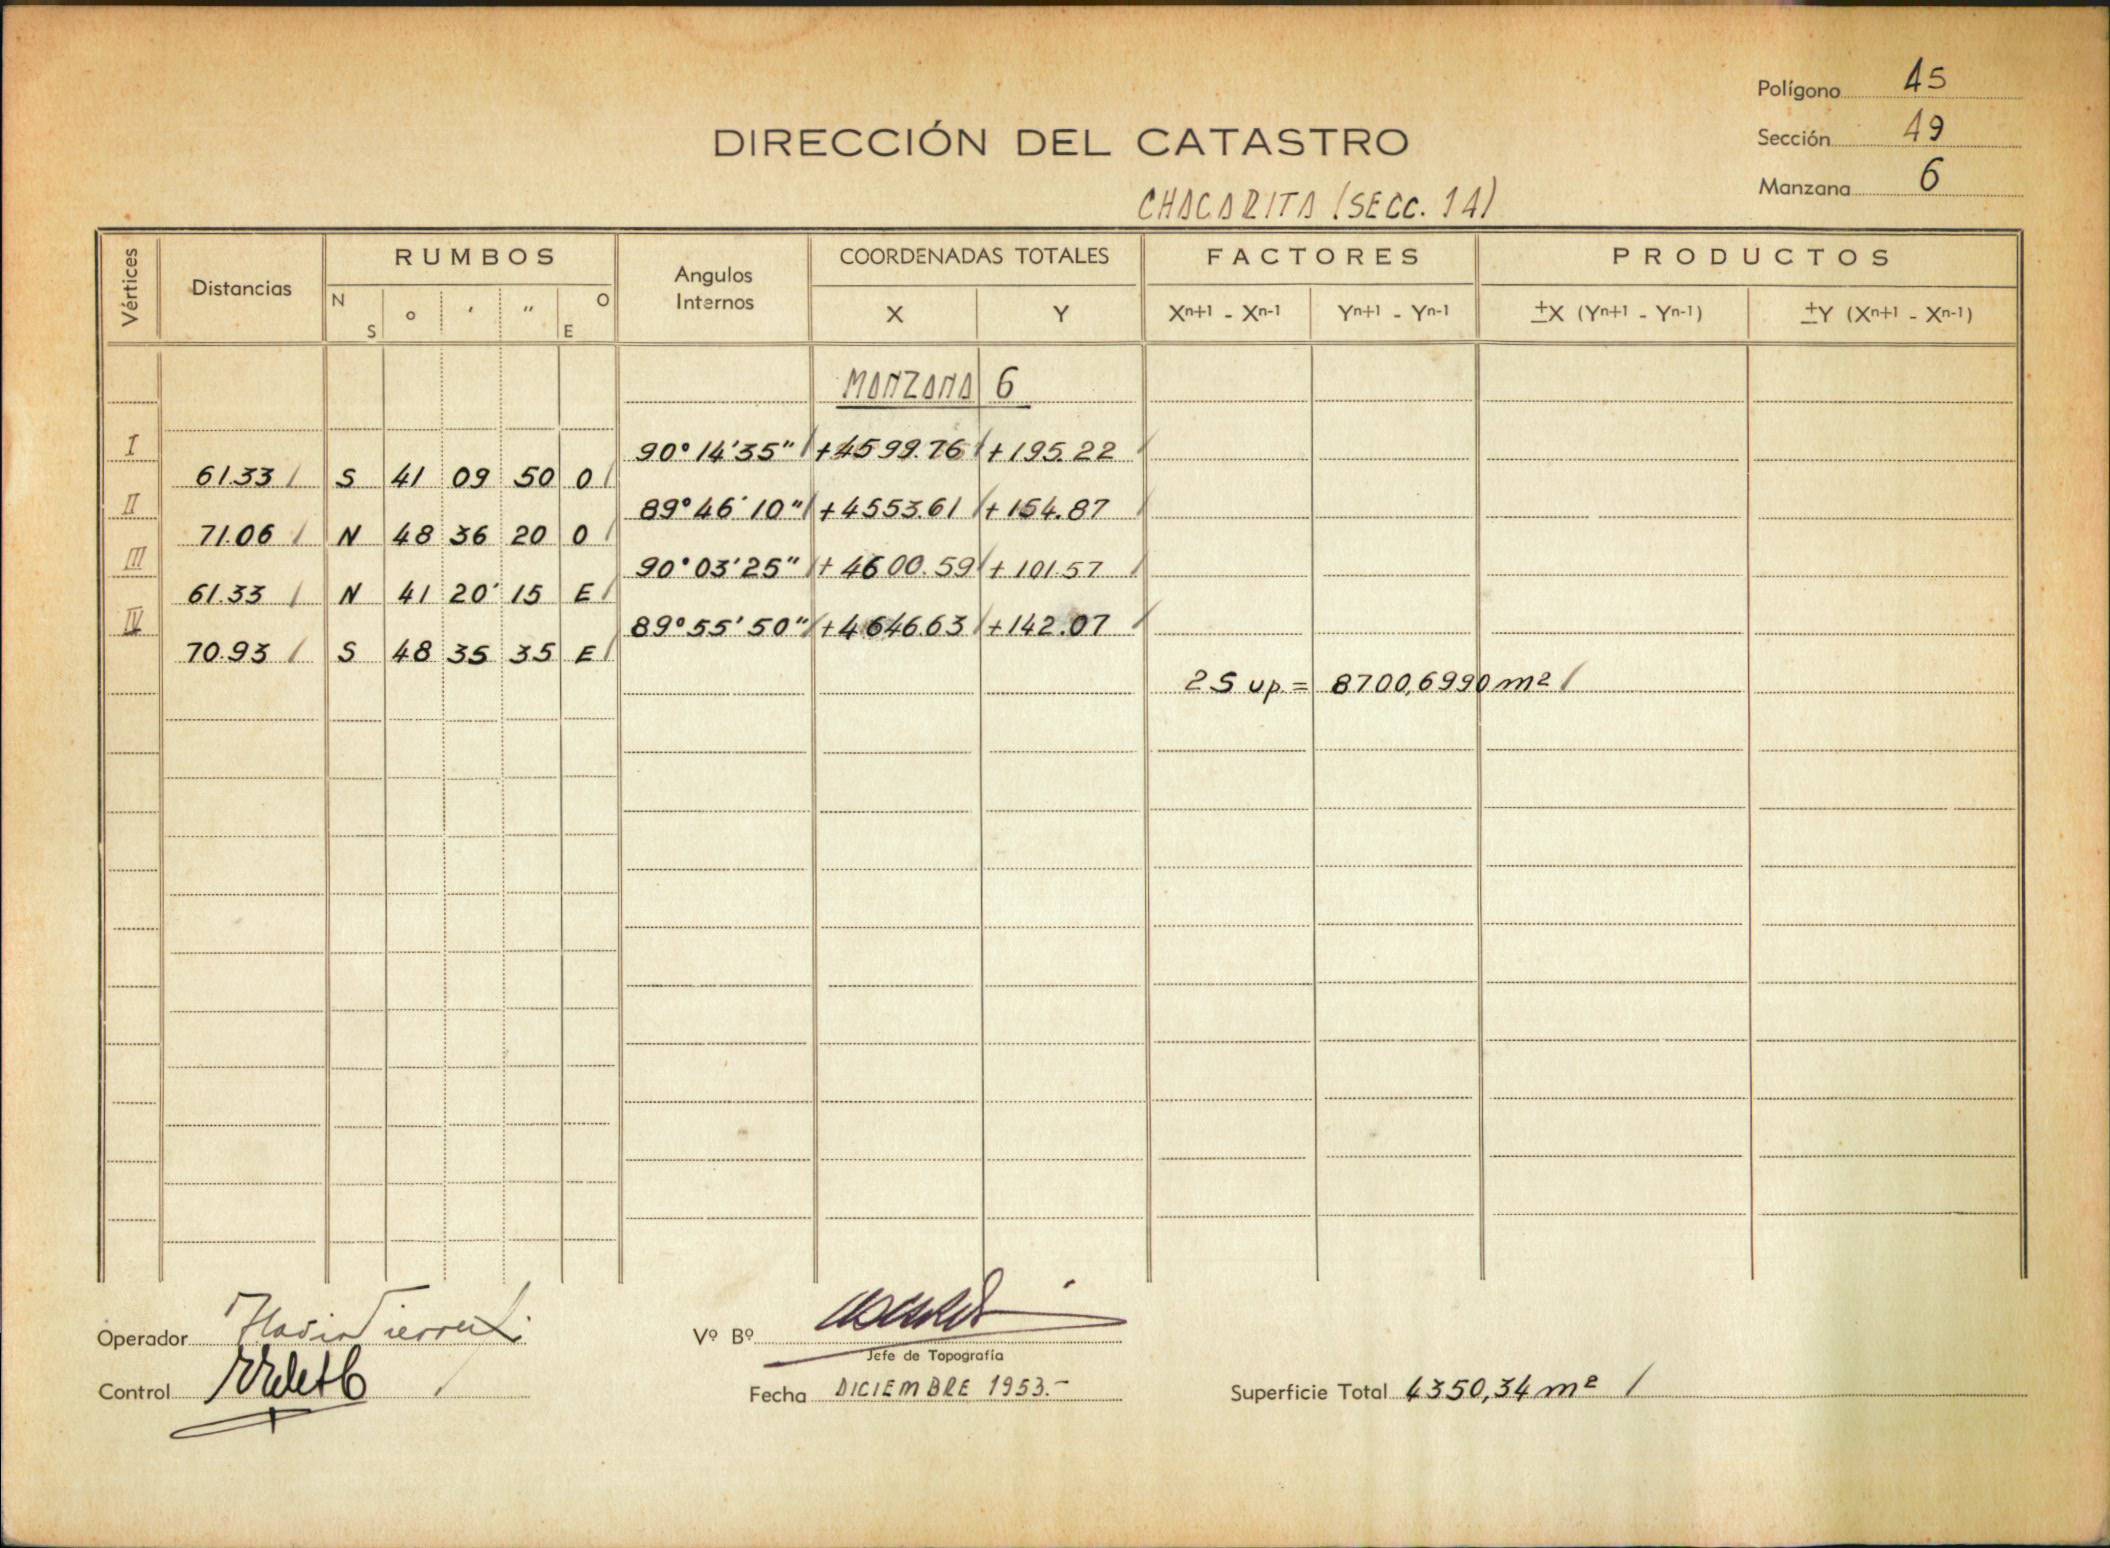 Polígono 45
DIRECCIÓN DEL CATASTRO
Sección 49
Manzana 6
CHACARITA (SECC. 14)
Vértices Distancias RUMBOS Angulos Internos COORDENADAS TOTALES FACTORES PRODUCTOS
N S ° ' " O E X Y Xn+1 - Xn-1 Yn+1 - Yn-1 ±X (Yn+1 - Yn-1) ±Y (Xn+1 - Xn-1)
MANZANA 6
I 90° 14' 35" +4599.76 +195.22
61.33 S 41 09 50 O
II 89° 46' 10" +4553.61 +154.87
71.06 N 48 36 20 O
III 90° 03' 25" +4600.59 +101.57
61.33 N 41 20' 15 E
IV 89° 55' 50" +4646.63 +142.07
70.93 S 48 35 35 E
2 S up. = 8700,6990 m²
Operador
Vº Bº
Jefe de Topografía
Control
Fecha DICIEMBRE 1953.-
Superficie Total 4350,34 m²